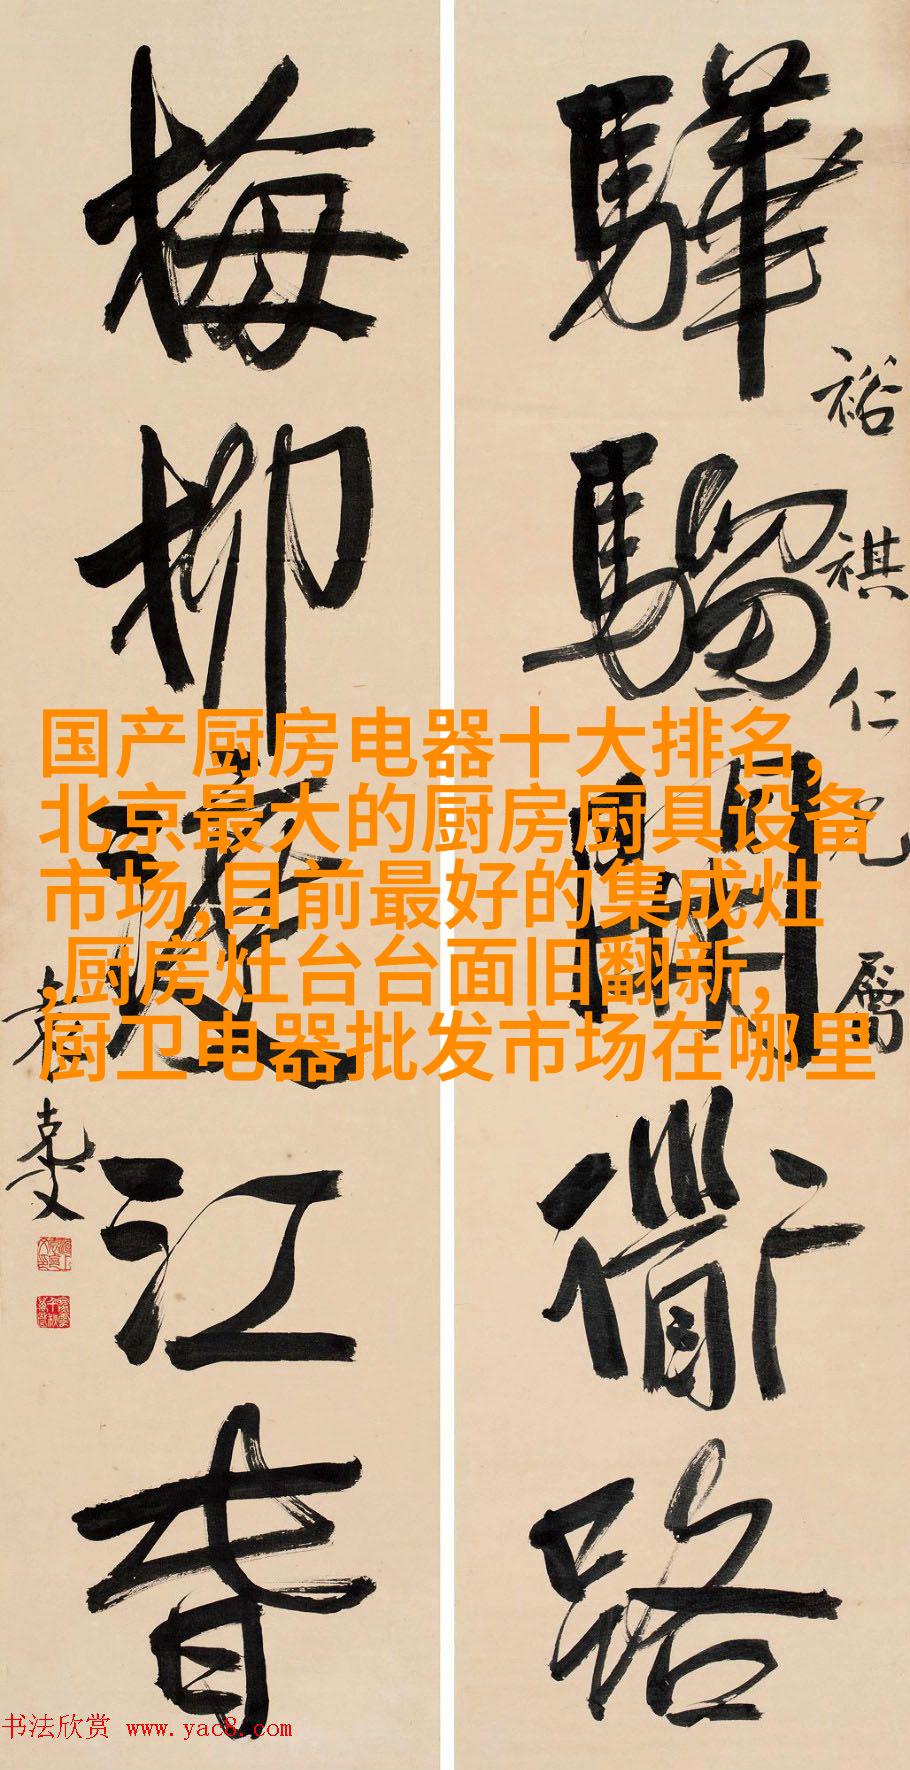 裕祺仁兄屬
驊騮開衟路
梅柳渡江春
袁克文
国产厨房电器十大排名,
北京最大的厨房厨具设备
市场,目前最好的集成灶
,厨房灶台台面旧翻新,
厨卫电器批发市场在哪里
书法欣赏 www.yac8.com